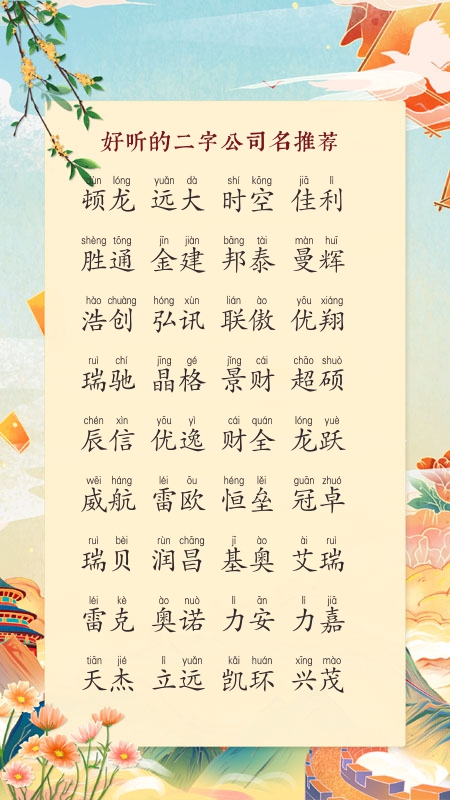 好听的二字公司名推荐
dùn lóng yuǎn dà shí kōng jiā lì
顿龙 远大 时空 佳利
shèng tōng jīn jiàn bāng tài màn huī
胜通 金建 邦泰 曼辉
hào chuàng hóng xùn lián ào yōu xiáng
浩创 弘讯 联傲 优翔
ruì chí jīng gé jǐng cái chāo shuò
瑞驰 晶格 景财 超硕
chén xìn yōu yì cái quán lóng yuè
辰信 优逸 财全 龙跃
wēi háng léi ōu héng lěi guān zhuó
威航 雷欧 恒垒 冠卓
ruì bèi rùn chāng jī ào ài ruì
瑞贝 润昌 基奥 艾瑞
léi kè ào nuò lì ān lì jiā
雷克 奥诺 力安 力嘉
tiān jié lì yuǎn kǎi huán xīng mào
天杰 立远 凯环 兴茂